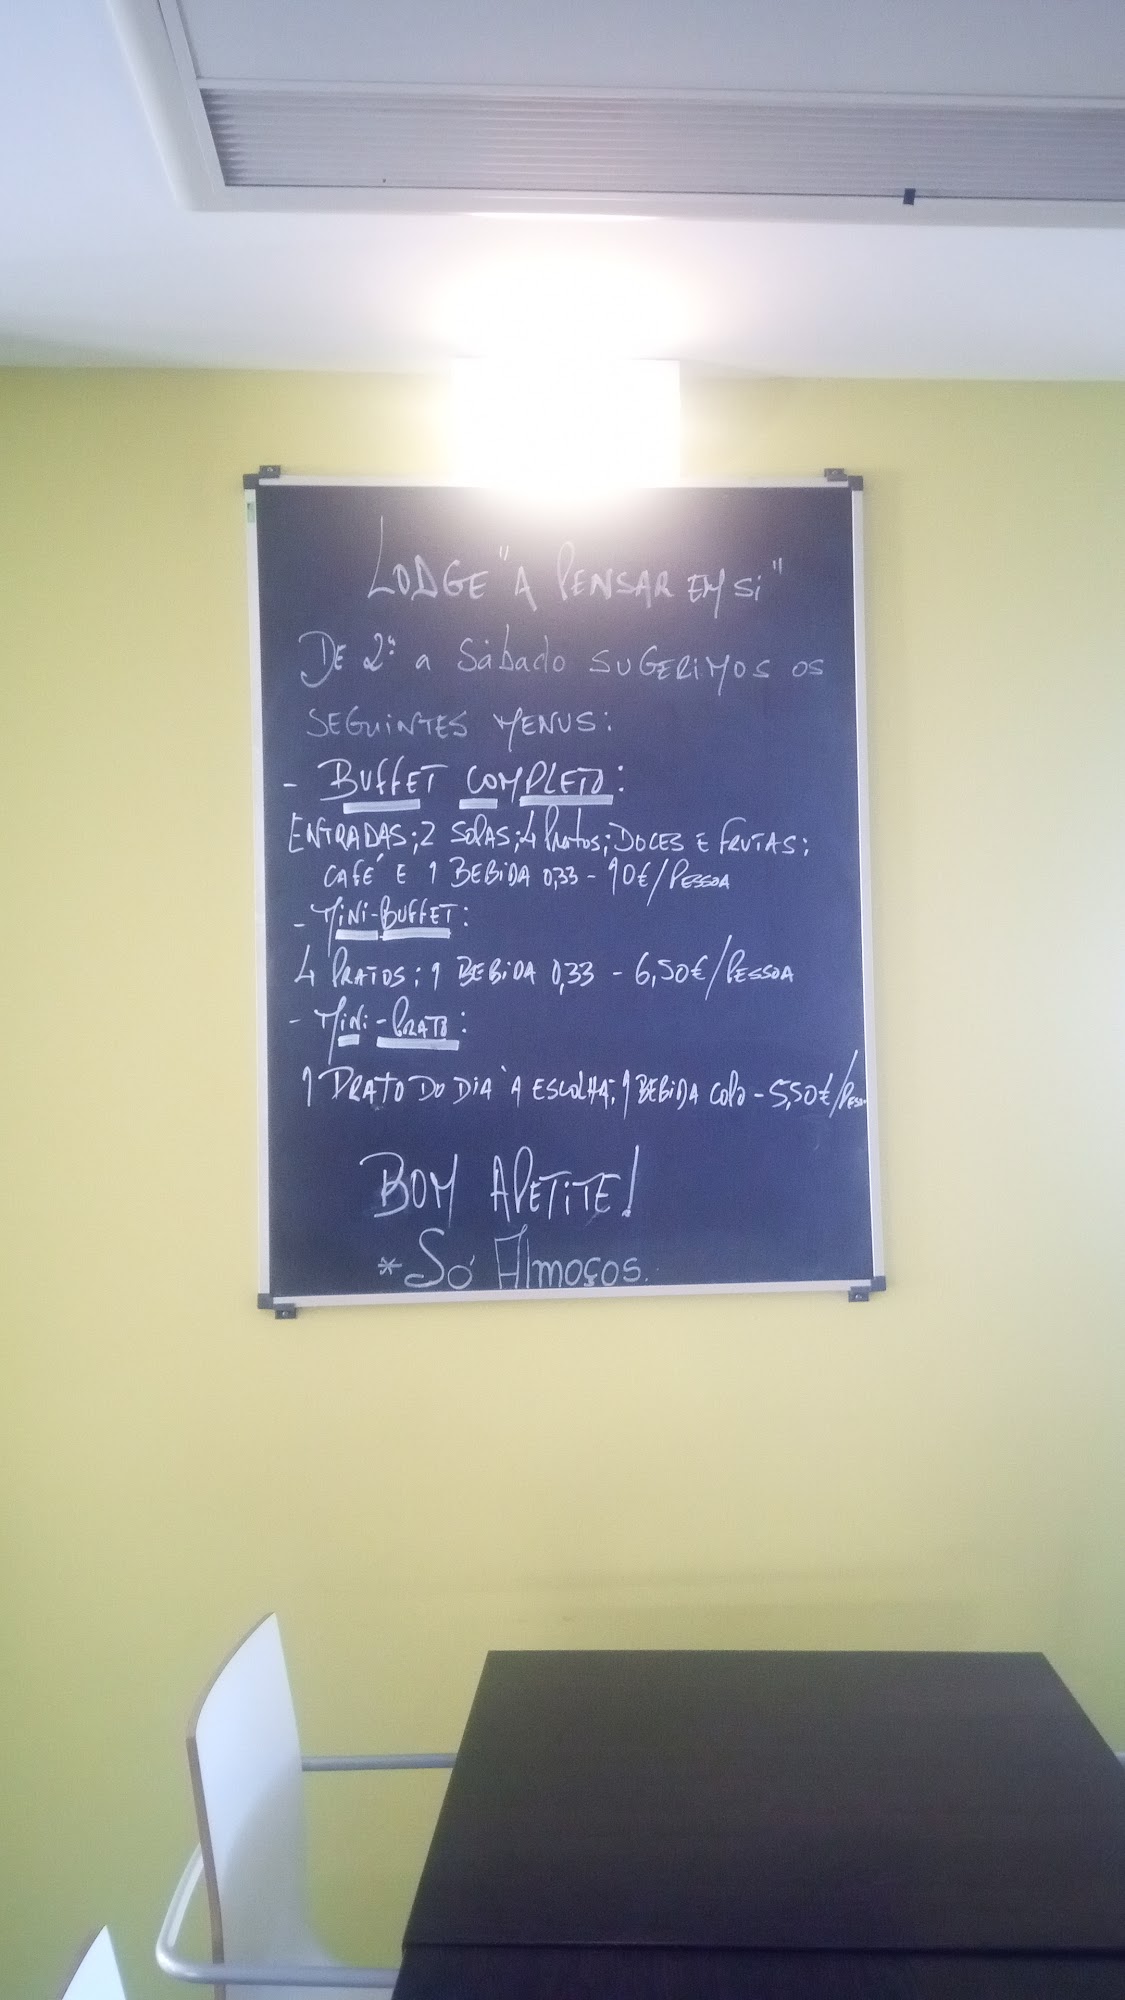 LODGE "A PENSAR EM SI"
DE 2ª a Sábado SUGERIMOS OS
SEGUINTES MENUS:
- BUFFET COMPLETO:
ENTRADAS; 2 SOPAS; 4 Pratos; DOCES E FRUTAS;
CAFÉ E 1 BEBIDA 0,33 - 10€/PESSOA
- MINI-BUFFET:
4 PRATOS; 1 BEBIDA 0,33 - 6,50€/PESSOA
- MINI-PRATO:
1 PRATO DO DIA À ESCOLHA; 1 BEBIDA COPO - 5,50€/PESS.
BOM APETITE!
*Só Almoços.